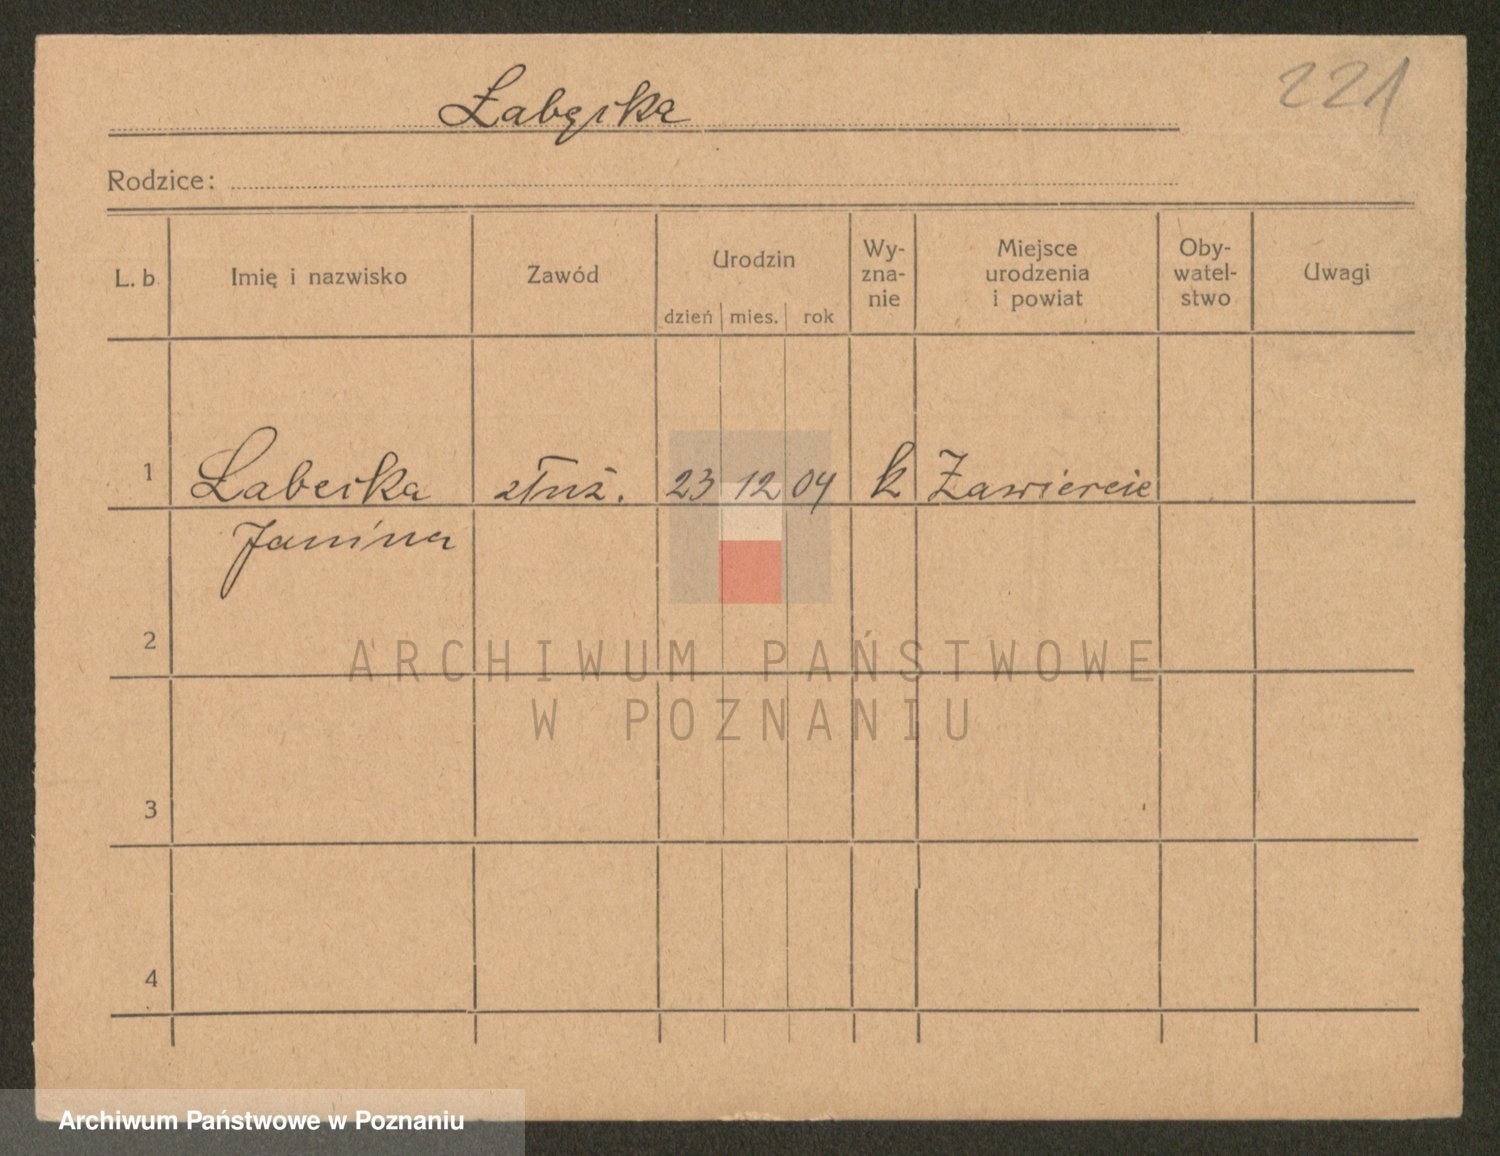 221
Łabęcka
Rodzice:
L. b. Imię i nazwisko Zawód Urodzin Wy-zna-nie Miejsce urodzenia i powiat Oby-watel-stwo Uwagi
dzień mies. rok
1 Łabecka służ. 23 12 04 k Zawiercie
Janina
2
3
4
ARCHIWUM PAŃSTWOWE
W POZNANIU
Archiwum Państwowe w Poznaniu